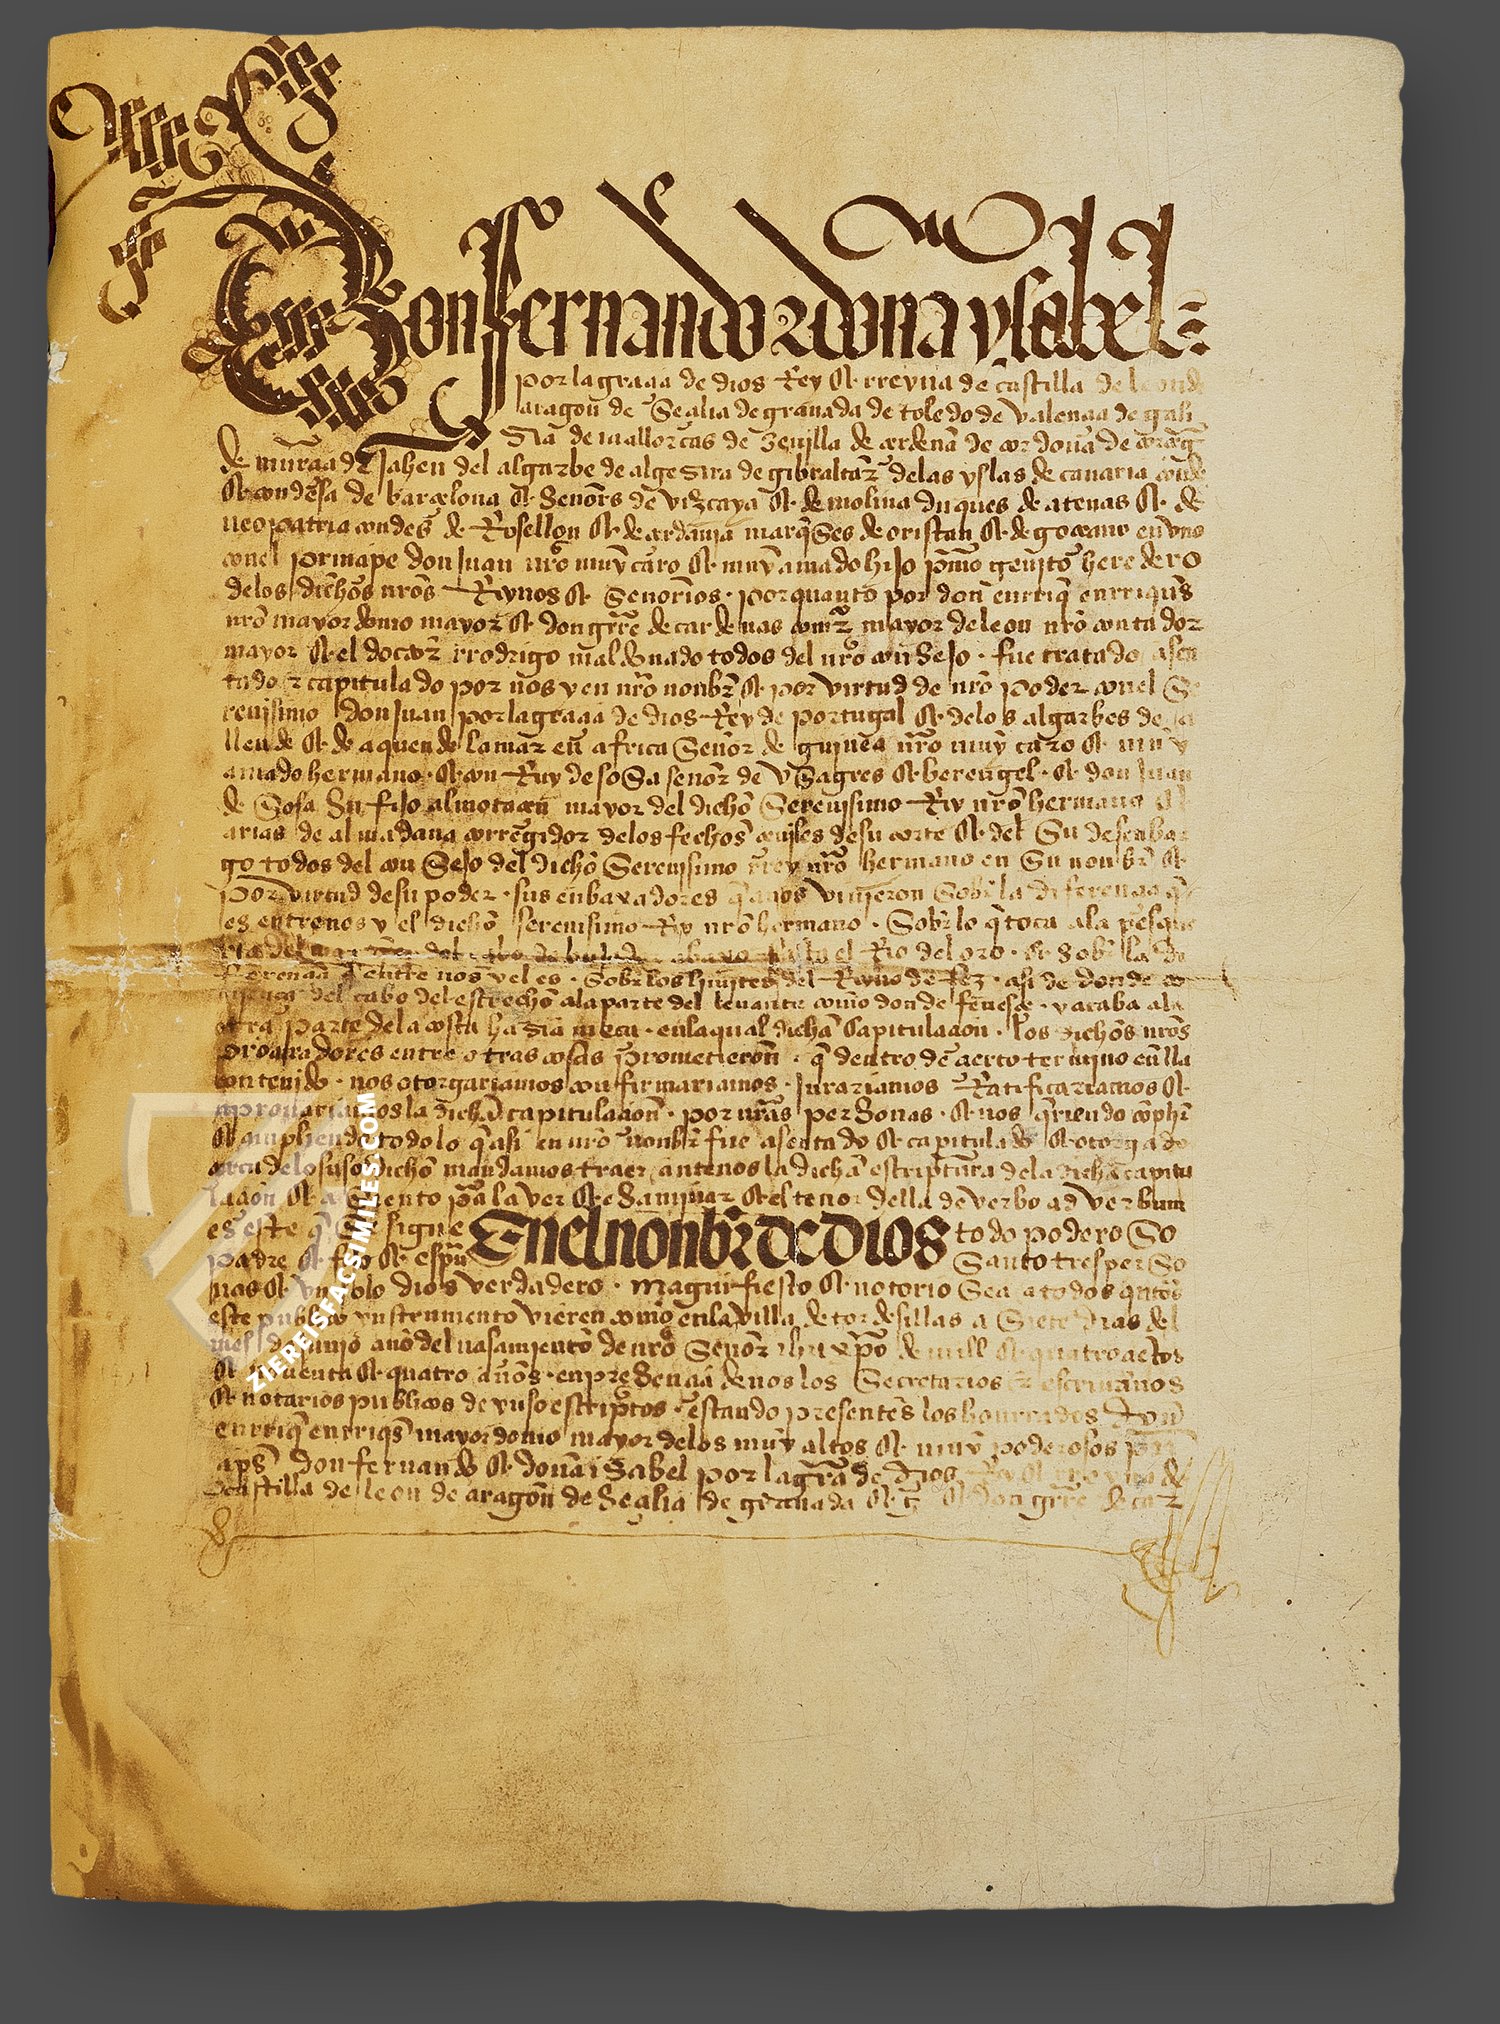 Don fernando ⁊ doña ysabel
por la graçia de dios Rey & rreyna de castilla de leon de
aragon de Seçilia de granada de toledo de valençia de gali
Sia de mallorcas de Seuilla de çerdeña de cordoua de corçega
de murçia de Jahen del algarbe de algesira de gibraltar delas yslas de canaria conde
& condesa de barçelona & Señores de vizcaya & de molina duques de atenas & de
neopatria condes de Rosellon & de çerdania marqses de oristan & de goçeano en vno
conel prinçipe don Juan nro muy caro & muy amado hijo primo genito heredero
delos dichos nros Reynos & Señorios · por quanto por don enrriq enrriqs
nro mayordomo mayor & don gtrre de cardenas comr mayor de leon nro contador
mayor & el doctor rrodrigo maldonado todos del nro conSejo · fue tratado asen
tado ⁊ capitulado por nos y en nro nonbr & por virtud de nro poder conel Se
renisimo don Juan por la graçia de dios Rey de portugal & delos algarbes de a
llende & de aquende la mar en africa Señor de guinea nro muy caro & muy
amado hermano · & con Ruy de soSa señor de vSagres & berengel · & don Juan
de Sosa Su fijo almotaçen mayor del dicho Serenisimo Rey nro hermano &
arias de almadana corregidor delos fechos çeuiles de su corte & del Su desenbar
go todos del conSejo del dicho Serenisimo rrey nro hermano en Su nonbr &
por virtud de su poder · sus enbaxadores q a nos vinieron Sobr la diferençia q
es entre nos y el dicho serenisimo Rey nro hermano · Sobr lo q toca ala pesque
ria del mar del cabo de bujador abaxo fasta el Rio del oro · & Sobr la di
ferençia q entre nos y el es · Sobr los limites del Reyno de fez · asi de donde co
miença del cabo del estrecho ala parte del leuante como donde feneSçe · y acaba ala
otra parte dela costa haSia meça · enla qual dicha Capitulaçion · los dichos nros
procuradores entre otras cosas prometieron · q dentro de çierto termino en lla
contenido · nos otorgariamos confirmariamos · Jurariamos Ratificariamos &
aprouariamos la dicha capitulaçion · por nras perSonas · & nos qriendo conplir
& cunpliendo todo lo q asi en nro nonbr fue asentado & capitulado & otorgado
çerca delo suso dicho mandamos traer ante nos la dicha escriptura dela dicha capitu
laçion & asiento pa la ver & eSaminar & el tenor della de verbo ad verbum
es este q se sigue En el nonbr de dios todo poderoSo
padre & fijo & espu Santo tres perSo
nas & vn solo dios verdadero · magnifiesto & notorio Sea a todos qntos
este publico ynstrumento vieren como enla villa de tordesillas a Siete dias del
mes de Junio año del nasçimiento de nro Señor ihu xpo de mill & quatroçietos
& nouenta & quatro años · en preSençia de nos los Secretarios & escriuanos
& notarios publicos de yuso escriptos · estando presentes los honrrados don
enrriq enrriqs mayordomo mayor delos muy altos & muy poderosos prin
çipes don fernando & doña iSabel por la gra de dios Rey & rreyna de
Castilla de leon de aragon de Seçilia de granada & c & don gtrre de car
ZIEREISFACSIMILES.COM